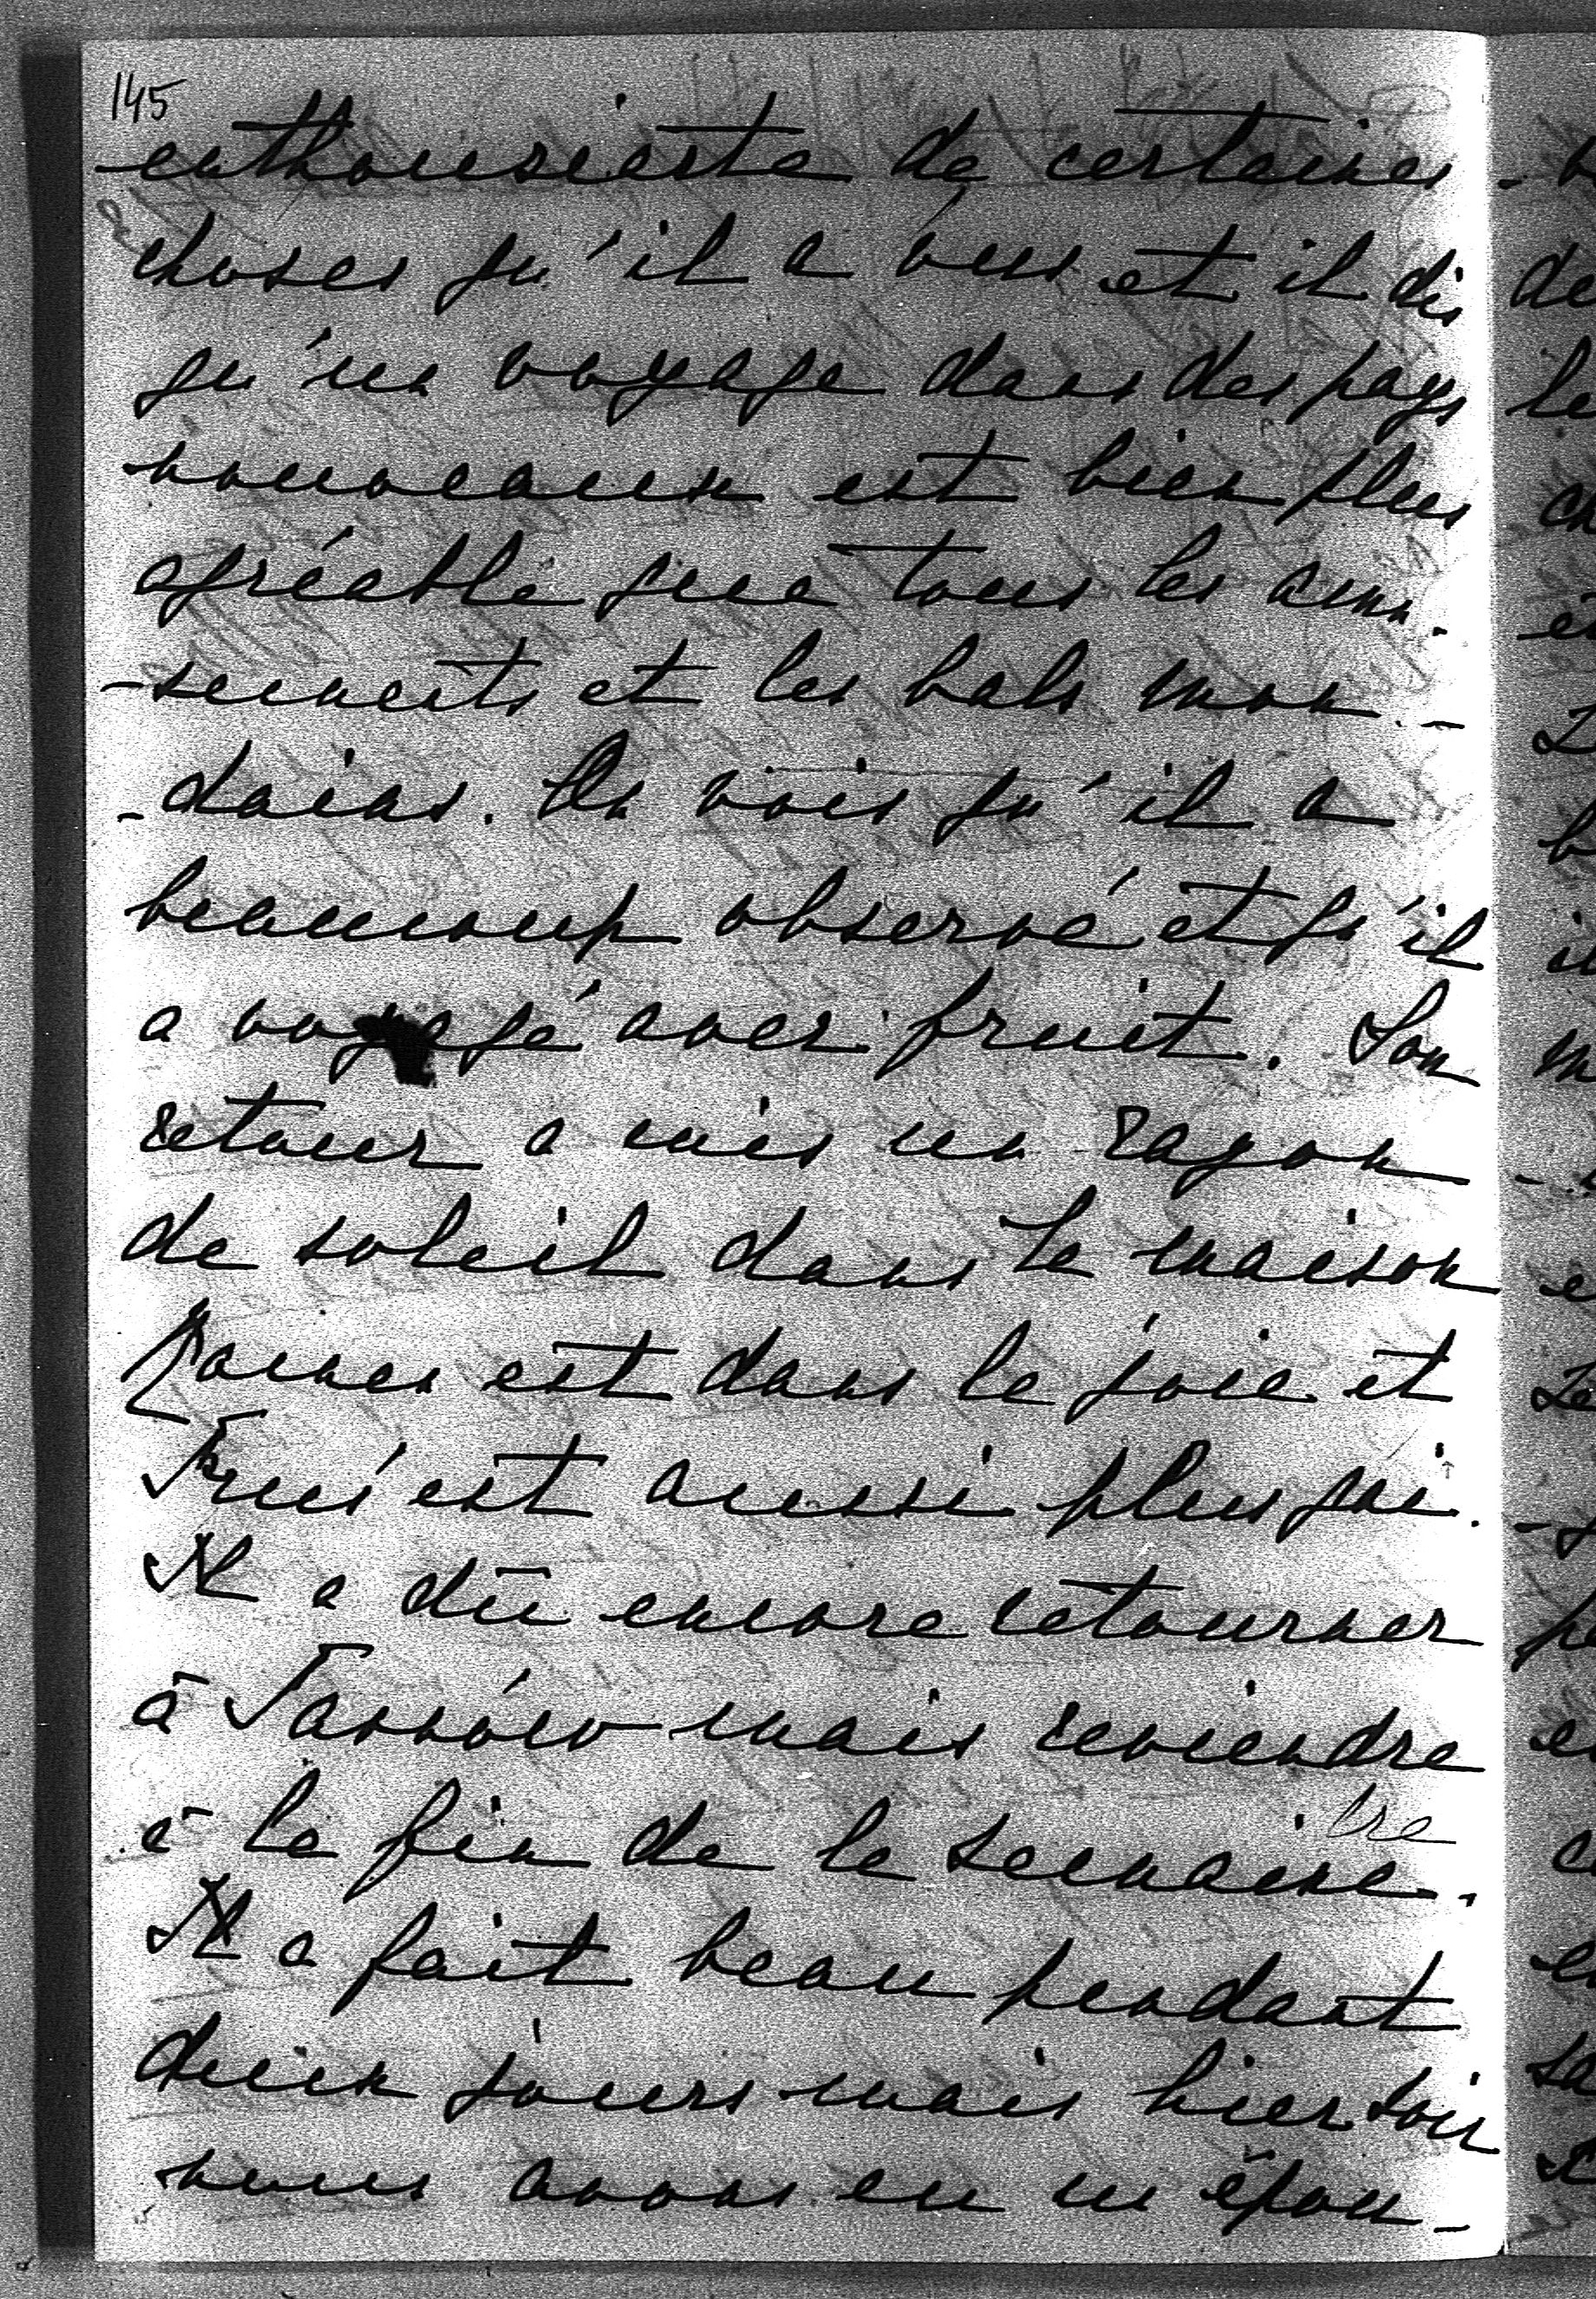 145
enthousiaste de certaines
choses qu'il a vus et il dis
qu'un voyage dans des pays
nouveaux est bien plus
agréable que tous les amu-
-sements et les bals mon-
-dains. On vois qu'il a
beaucoup observé et qu'il
a voyagé avec fruit. Son
retour a mis un rayon
de soleil dans la maison
est dans la joie et
est aussi plus gai.
Il a dû encore retourner
à mais reviendra
à la fin de la semaine.
Il a fait beau pendant
deux jours mais hier soir
nous avons eu un épou-